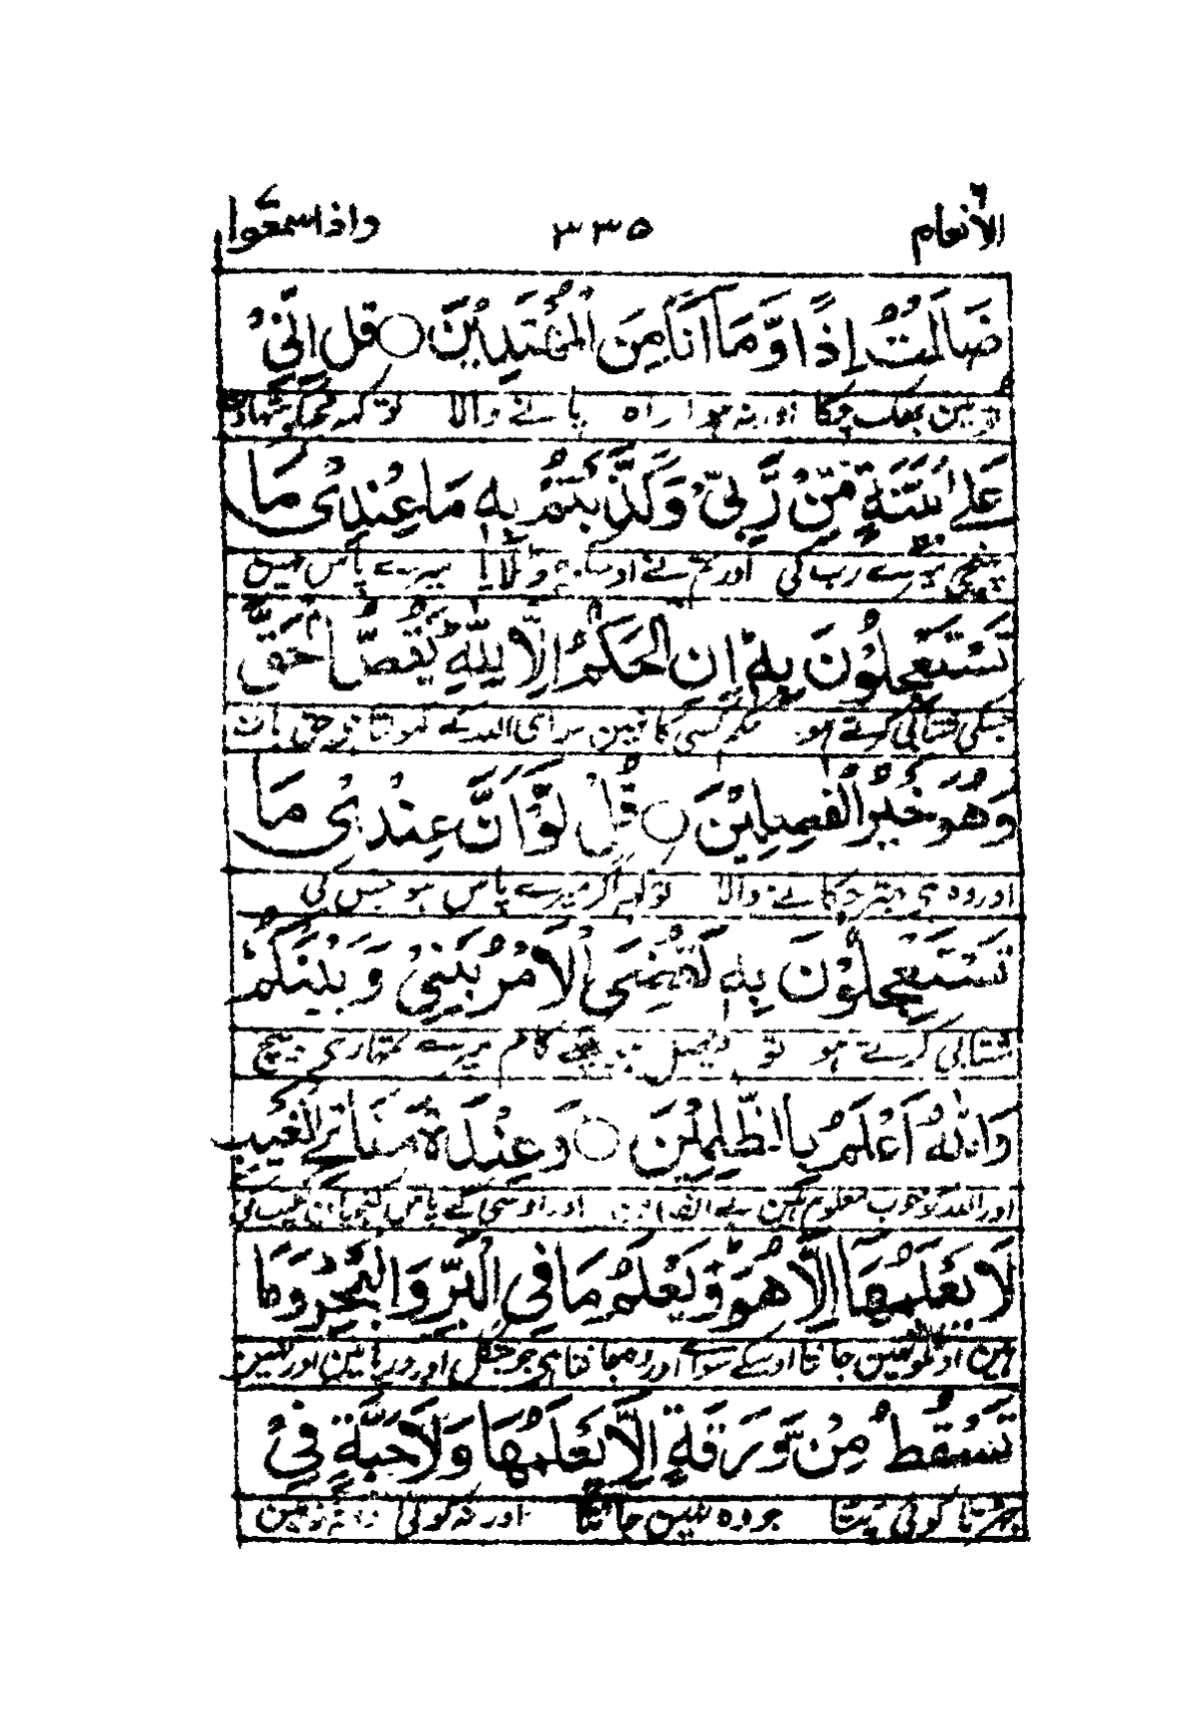 الأنعام ٦ ٣٣٥ واذا سمعوا
ضَلَلْتُ اِذًا وَّمَآ اَنَا مِنَ الْمُهْتَدِيْنَ ○ قُلْ اِنِّيْ
تو مین بھک چکا اور نہ ہوا راہ پانے والا تو کہہ مجھکو شہادت
عَلٰى بَيِّنَةٍ مِّنْ رَّبِّيْ وَكَذَّبْتُمْ بِهٖ مَا عِنْدِيْ مَا
پہنچی میرے رب کی اور تم نے اوسکو جھٹلایا میرے پاس نہین
تَسْتَعْجِلُوْنَ بِهٖ اِنِ الْحُكْمُ اِلَّا لِلّٰهِ يَقُصُّ الْحَقَّ
جسکی شتابی کرتے ہو حکم کسی کا نہین سوای اللہ کے کھولتا ہو حق بات
وَهُوَ خَيْرُ الْفٰصِلِيْنَ ○ قُلْ لَّوْ اَنَّ عِنْدِيْ مَا
اور وہ ہی بہتر چکانے والا تو کہہ اگر میرے پاس ہو جس کی
تَسْتَعْجِلُوْنَ بِهٖ لَقُضِيَ الْاَمْرُ بَيْنِيْ وَبَيْنَكُمْ
شتابی کرتے ہو تو فیصل ہو چکے کام میرے تمھاری بیچ
وَاللّٰهُ اَعْلَمُ بِالظّٰلِمِيْنَ ○ وَعِنْدَهٗ مَفَاتِحُ الْغَيْبِ
اور اللہ کو خوب معلوم ہین بے انصاف اور اوسی کے پاس کنجیان غیب کی
لَا يَعْلَمُهَآ اِلَّا هُوَ وَيَعْلَمُ مَا فِى الْبَرِّ وَالْبَحْرِ وَمَا
ہین اونکو نہین جانتا اوسکے سوائے اور وہ جانتا ہی جو جنگل اور دریا مین اور نہین
تَسْقُطُ مِنْ وَّرَقَةٍ اِلَّا يَعْلَمُهَا وَلَا حَبَّةٍ فِيْ
جھڑتا کوئی پتا جو وہ نہین جانتا اور نہ کوئی دانہ زمین